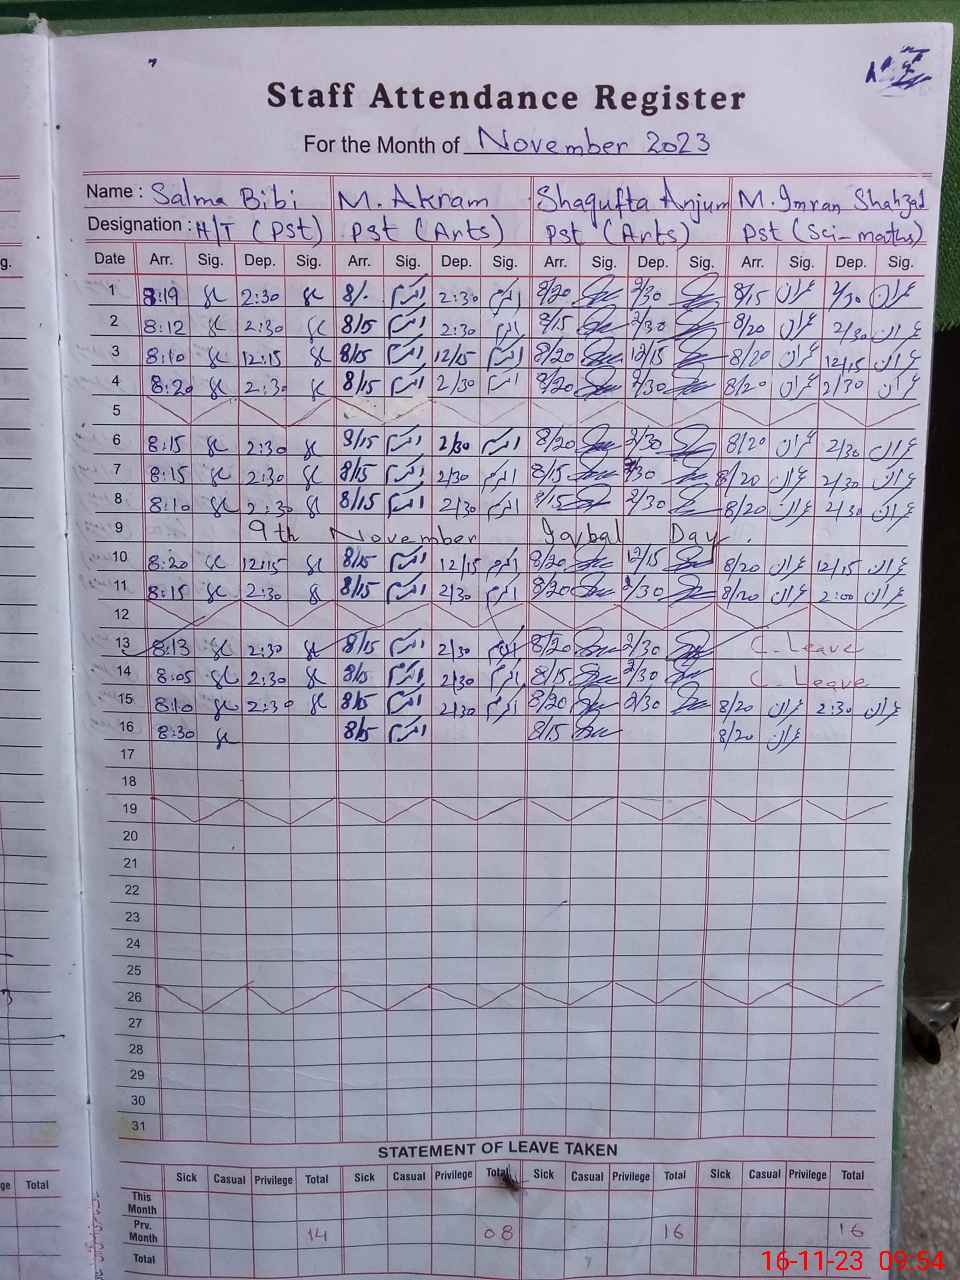 Staff Attendance Register
For the Month of November 2023
Name : Salma Bibi M. Akram Shagufta Anjum M. Imran Shahzad
Designation : H/T (Pst) Pst (Arts) Pst (Arts) Pst (Sci-maths)
Date Arr. Sig. Dep. Sig. Arr. Sig. Dep. Sig. Arr. Sig. Dep. Sig. Arr. Sig. Dep. Sig.
1 8:19 2:30 8/- اکرم 2:30 اکرم 8/20 2/30 8/15 عمران 2/30 عمران
2 8:12 2:30 8/15 اکرم 2:30 اکرم 8/15 2/30 8/20 عمران 2/30 عمران
3 8:10 12:15 8/15 اکرم 12/15 اکرم 8/20 12/15 8/20 عمران 12/15 عمران
4 8:20 2:30 8/15 اکرم 2/30 اکرم 8/20 2/30 8/20 عمران 2/30 عمران
5
6 8:15 2:30 8/15 اکرم 2/30 اکرم 8/20 2/30 8/20 عمران 2/30 عمران
7 8:15 2:30 8/15 اکرم 2/30 اکرم 8/15 2/30 8/20 عمران 2/30 عمران
8 8:10 2:30 8/15 اکرم 2/30 اکرم 8/15 2/30 8/20 عمران 2/30 عمران
9 9th November Iqbal Day.
10 8:20 12:15 8/15 اکرم 12/15 اکرم 8/20 12/15 8/20 عمران 12/15 عمران
11 8:15 2:30 8/15 اکرم 2/30 اکرم 8/20 2/30 8/20 عمران 2:00 عمران
12
13 8:13 2:30 8/15 اکرم 2/30 اکرم 8/20 2/30 C. Leave
14 8:05 2:30 8/15 اکرم 2/30 اکرم 8/15 2/30 C. Leave
15 8:10 2:30 8/15 اکرم 2/30 اکرم 8/20 2/30 8/20 عمران 2:30 عمران
16 8:30 8/15 اکرم 8/15 8/20 عمران
17
18
19
20
21
22
23
24
25
26
27
28
29
30
31
STATEMENT OF LEAVE TAKEN
Sick Casual Privilege Total Sick Casual Privilege Total Sick Casual Privilege Total Sick Casual Privilege Total
This Month
Prv. Month 14 08 16 16
Total
g.
ge Total
16-11-23 09:54